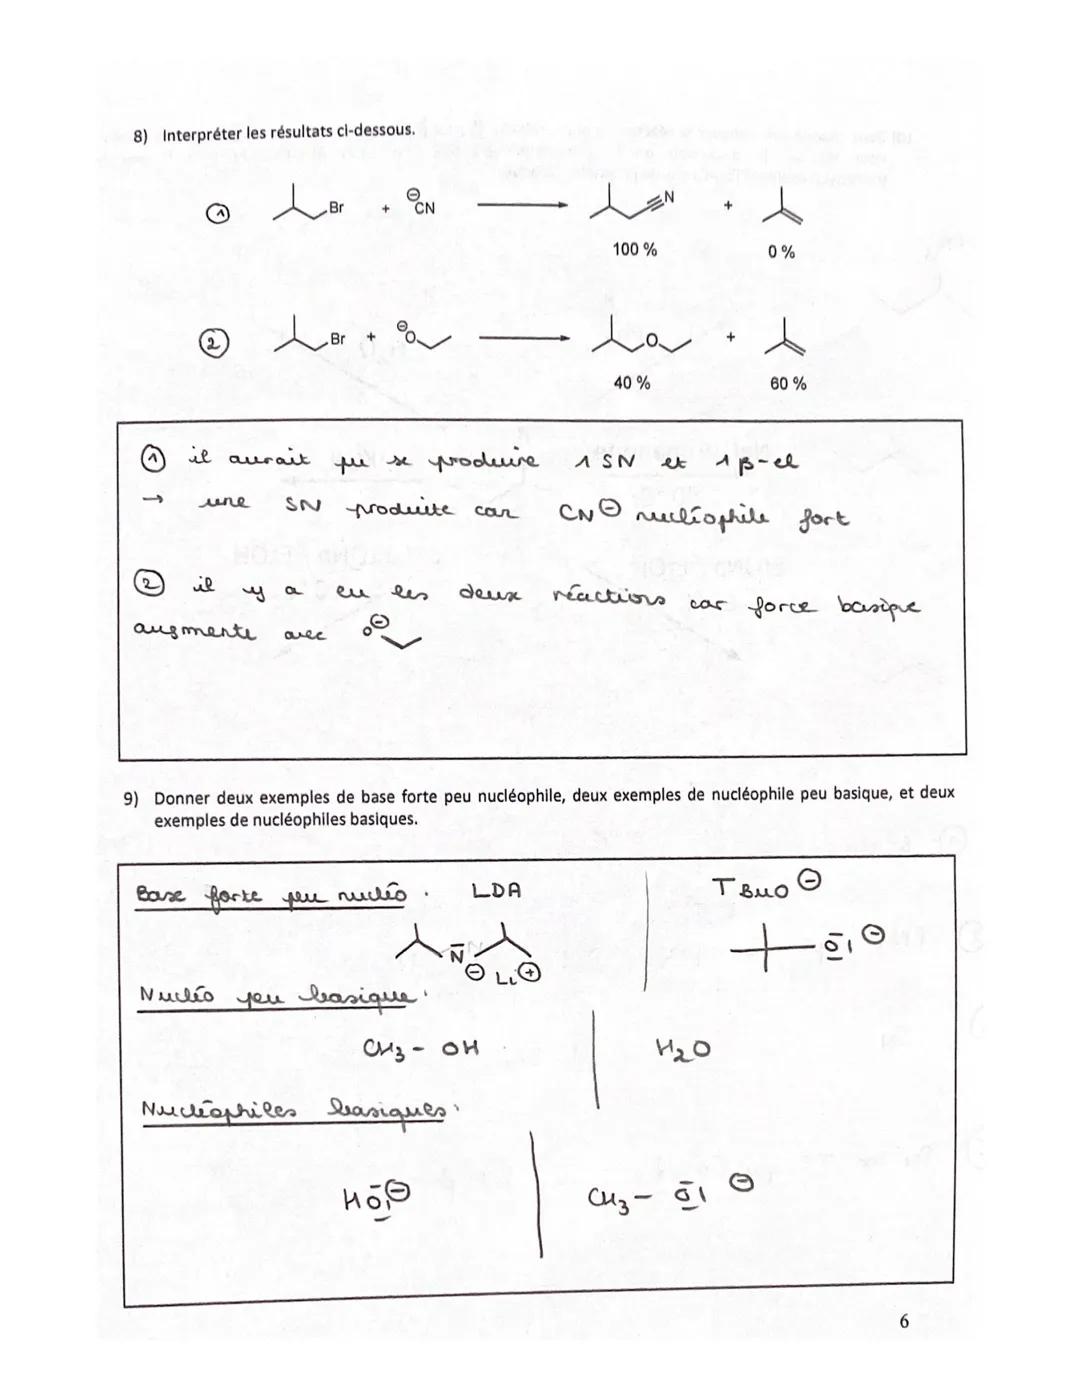 8) Interpréter les résultats ci-dessous.
① Br + ⊖CN N +
100 % 0 %
② Br + ⊖O O +
40 % 60 %
① il aurait pu se produire 1 SN et 1 β-el
→ une SN produite car CN⊖ nucléophile fort
② il y a eu les deux réactions car force basique
augmente avec O⊖
9) Donner deux exemples de base forte peu nucléophile, deux exemples de nucléophile peu basique, et deux
exemples de nucléophiles basiques.
Base forte peu nucléo : LDA TBuO⊖
N⊖ Li⊕ O⊖
Nucléo peu basique :
CH3 - OH H2O
Nucléophiles basiques :
HO⊖ CH3 - O⊖
6